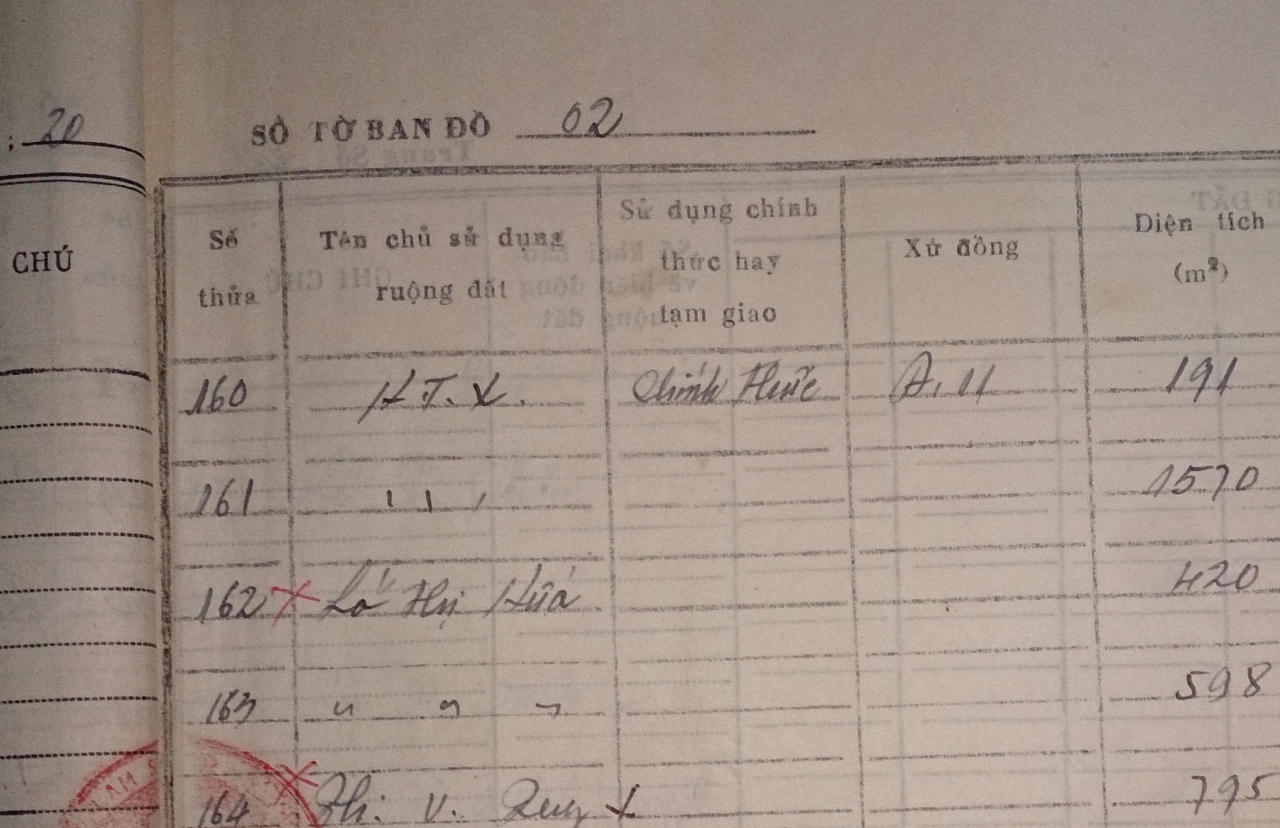 ; 20
CHÚ
SỐ TỜ BẢN ĐỒ 02
Số thửa
Tên chủ sử dụng ruộng đất
Sử dụng chính thức hay tạm giao
Xứ đồng
Diện tích (m²)
160 H T. X. Chính thức Đ. 11 191
161 ׀ ׀ ׀ 1570
162 x Thị Hứa 420
163 " " " 598
164 x V. x 795